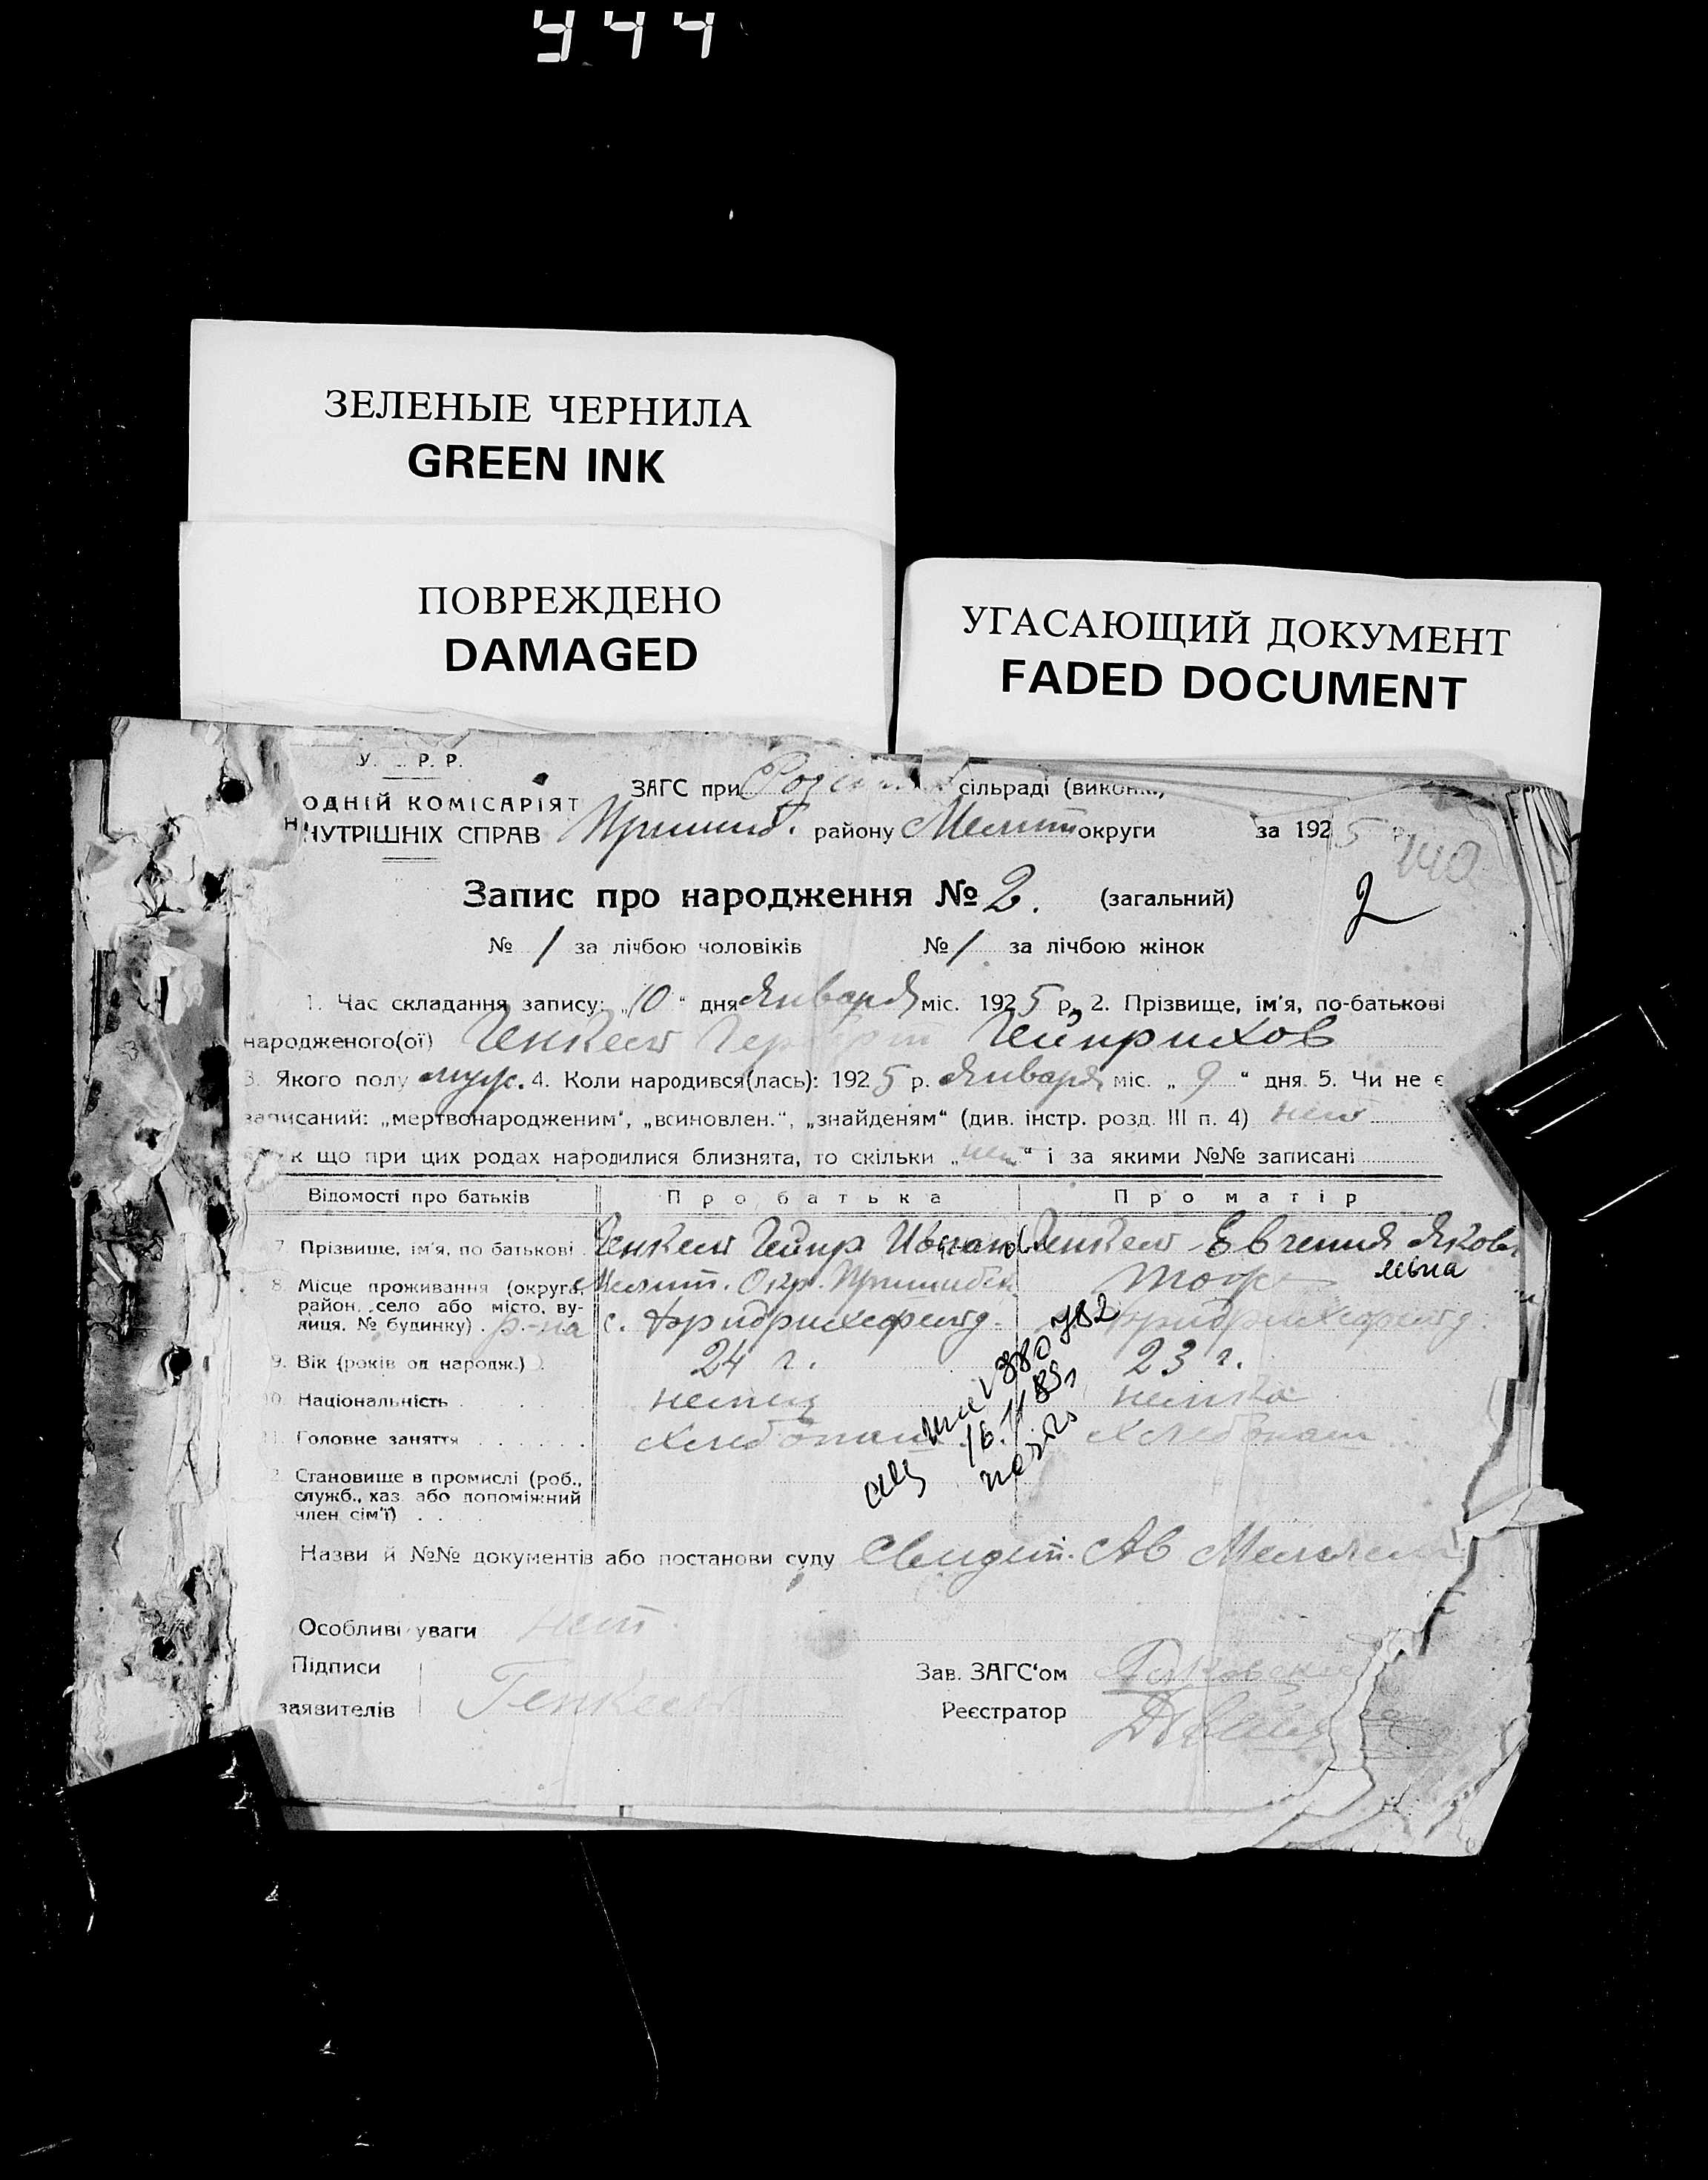 944
ЗЕЛЕНЫЕ ЧЕРНИЛА
GREEN INK
ПОВРЕЖДЕНО
DAMAGED
УГАСАЮЩИЙ ДОКУМЕНТ
FADED DOCUMENT
У. Р. Р.
ОДНІЙ КОМІСАРІЯТ
НУТРІШНІХ СПРАВ
ЗАГС при сільраді
Пришиб. району Мелит округи за 1925
140
Запис про народження № 2. (загальний)
2
№ 1 за лічбою чоловіків № 1 за лічбою жінок
1. Час складання запису: „10“ дня Января міс. 1925 р. 2. Прізвище, ім'я, по-батькові
народженого(ої) Генкель Герберт Гейнрихов
3. Якого полу муж. 4. Коли народився(лась): 1925 р. Января міс. „9“ дня. 5. Чи не є
записаний: „мертвонародженим“, „всиновлен.“, „знайденям“ (див. інстр. розд. III п. 4) нет
к що при цих родах народилися близнята, то скільки „нет“ і за якими №№ записані
Відомості про батьків Про батька Про матір
7 Прізвище, ім'я, по батькові Генкель Гейнр Иванов Генкель Евгения Яковл
евна
8. Місце проживання (округа, Мелит. Окр. Пришибск тоже
район, село або місто, ву-
лиця. № будинку) р-на с. Фридрихсфельд. Фридрихсфельд.
9. Вік (років од народж.) 24 г. 23 г.
10. Національність немец немка
11. Головне заняття хлебопаш хлебопаш
2. Становище в промислі (роб.,
служб., хаз. або допоміжний
член сім'ї)
380782
16.
Назви й №№ документів або постанови суду Свидет.
Особливі уваги нет.
Підписи
заявителів Генкель
Зав. ЗАГС'ом
Реєстратор